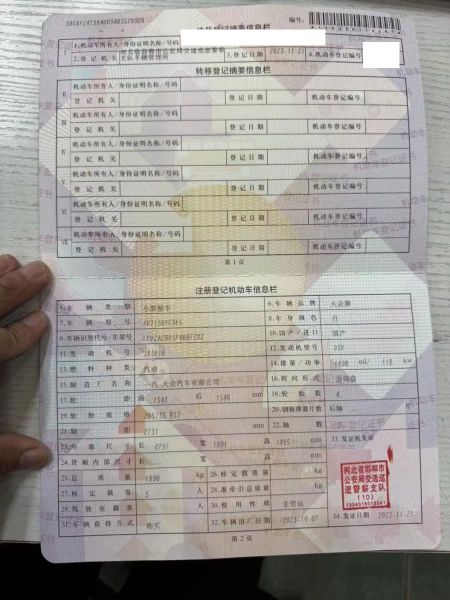 注册登记摘要信息栏
编号:
1.机动车所有人/身份证明名称/号码
2.登记机关 河北省邯郸市公安局交通巡逻警察支队车辆管理所 3.登记日期 2023-11-21 4.机动车登记编号
转移登记摘要信息栏
Ⅱ 机动车所有人/身份证明名称/号码
登记机关 登记日期 机动车登记编号
Ⅲ 机动车所有人/身份证明名称/号码
登记机关 登记日期 机动车登记编号
Ⅳ 机动车所有人/身份证明名称/号码
登记机关 登记日期 机动车登记编号
Ⅴ 机动车所有人/身份证明名称/号码
登记机关 登记日期 机动车登记编号
Ⅵ 机动车所有人/身份证明名称/号码
登记机关 登记日期 机动车登记编号
Ⅶ 机动车所有人/身份证明名称/号码
登记机关 登记日期 机动车登记编号
第1页
注册登记机动车信息栏
5.车辆类型 小型轿车 6.车辆品牌 大众牌
7.车辆型号 8.车身颜色 白
9.车辆识别代号/车架号 10.国产/进口 国产
11.发动机号 12.发动机型号 DSV
13.燃料种类 汽油 14.排量/功率 1498 ml/ 118 kw
15.制造厂名称 一汽-大众汽车有限公司 16.转向形式 方向盘
17.轮距 前 1543 后 1546 mm 18.轮胎数 4
19.轮胎规格 205/55 R17 20.钢板弹簧片数 后轴
21.轴距 2731 mm 22.轴数 33.发证机关章
23.外廓尺寸 长 4791 宽 1801 高 1465 mm
24.货厢内部尺寸 长 宽 高 mm
25.总质量 kg 26.核定载质量 kg
27.核定载客 5 人 28.准牵引总质量 kg
29.驾驶室载客 人 30.使用性质 非营运
31.车辆获得方式 购买 32.车辆出厂日期 34.发证日期 2023-11-21
河北省邯郸市
公安局交通巡
逻警察支队
(10)
第2页